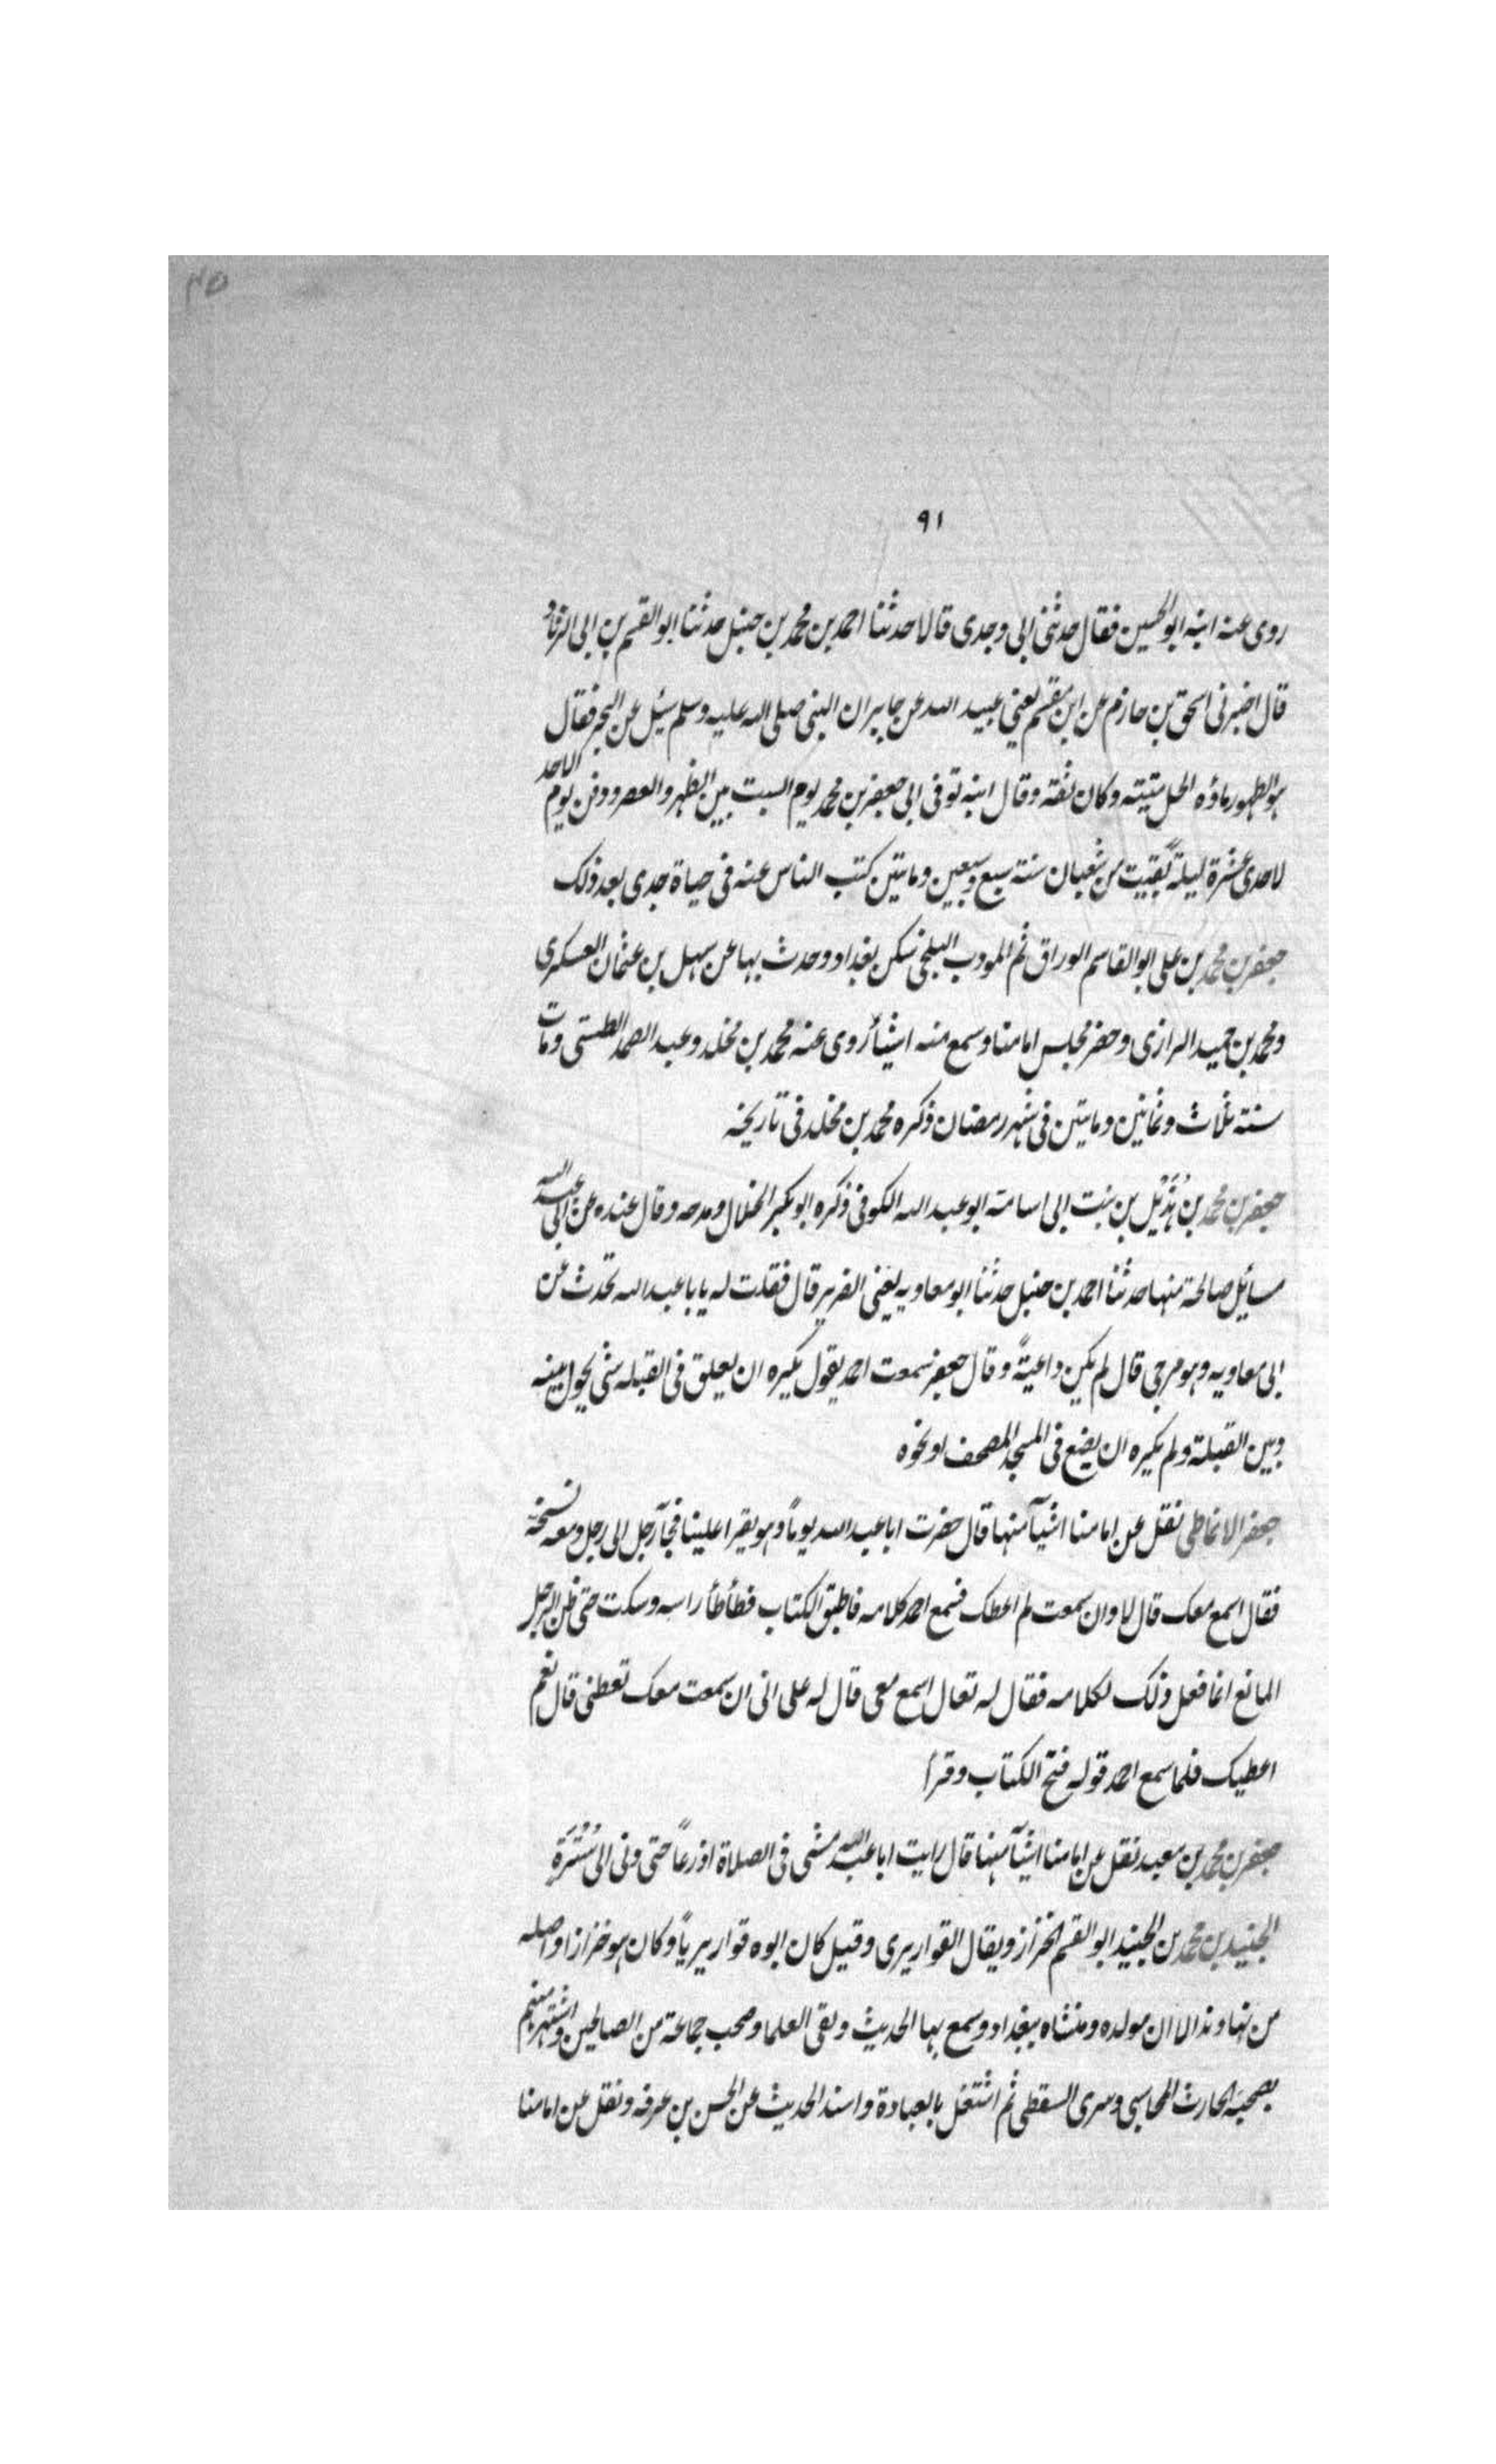 ٤٥
٩١
روى عنه ابنه ابو الحسين فقال حدثنى ابى وجدى قالا حدثنا احمد بن محمد بن حنبل حدثنا ابو القسم بن ابى الزناد
قال اخبرنى اسحق بن حازم عن ابن مقسم يعنى عبيد الله عن جابر ان النبى صلى الله عليه وسلم سئل عن البحر فقال
هو الطهور ماؤه الحل ميتته وكان ثقة وقال ابنه توفى ابى جعفر بن محمد يوم السبت بين الظهر والعصر ودفن يوم الاحد
لاحدى عشرة ليلة بقيت من شعبان سنة سبع وسبعين وماىتين كتب الناس عنه فى حياة جدى بعد ذلك
جعفر بن محمد بن على ابو القاسم الوراق ثم المودب البلخى سكن بغداد وحدث بها عن سهل بن عثمان العسكرى
ومحمد بن حميد الرازى وحضر مجلس امامنا وسمع منه اشيأ روى عنه محمد بن مخلد وعبد الصمد الطستى ومات
سنة ثلاث وثمانين وماىتين فى شهر رمضان ذكره محمد بن مخلد فى تاريخه
جعفر بن محمد بن هُذَيْل بن بنت ابى اسامة ابو عبد الله الكوفى ذكره ابو بكر الخلال ومدحه وقال عنده عن ابى عبد الله
مسايل صالحة منها حدثنا احمد بن حنبل حدثنا ابو معاويه يعنى الضرير قال فقلت له يابا عبد الله تحدث عن
ابى معاويه وهو مرجى قال لم يكن داعيةً وقال جعفر سمعت احمد يقول يكره ان يعلق فى القبله شى يحول بينه
وبين القبلة ولم يكره ان يضع فى المسجد المصحف او نحوه
جعفر الانماطى نقل عن امامنا اشيآ منها قال حضرت ابا عبد الله يوماً وهو يقرا علينا فجآ رجل الى رجل ومعه نسخة
فقال اسمع معك قال لا وان سمعت لم اعطك فسمع احمد كلامه فاطبق الكتاب فطأطأ راسه وسكت حتى ظن الرجل
المانع انما فعل ذلك لكلامه فقال له تعال اسمع معى قال له على انى ان سمعت معك تعطنى قال نعم
اعطيك فلما سمع احمد قوله فتح الكتاب وقرأ
جعفر بن محمد بن معبد نقل عن امامنا اشيآ منها قال رايت ابا عبد الله مشى فى الصلاة اذرعاً حتى دنى الى سُتْرَة
الجنيد بن محمد بن الجنيد ابو القسم الخزاز ويقال القواريرى وقيل كان ابوه قواريرياً وكان هو خزازا واصله
من نهاوند الا ان مولده ومنشاه ببغداد وسمع بها الحديث ولقى العلما وصحب جماعة من الصالحين واشتهر منهم
بصحبة الحارث المحاسبى وسرى السقطى ثم اشتغل بالعبادة واسند الحديث عن الحسن بن عرفه ونقل عن امامنا